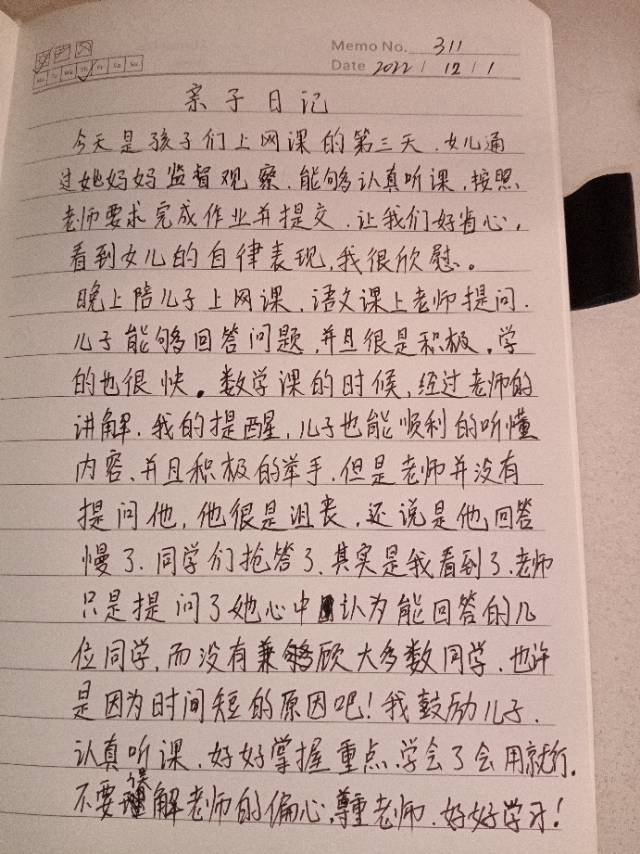 Memo No. 311
Mo Tu We Th Fr Sa Su
Date 2022 / 12 / 1
亲子日记
今天是孩子们上网课的第三天.女儿通
过她妈妈监督观察.能够认真听课,按照
老师要求完成作业并提交.让我们好省心,
看到女儿的自律表现,我很欣慰。
晚上陪儿子上网课、语文课上老师提问.
儿子能够回答问题,并且很是积极。学
的也很快。数学课的时候,经过老师的
讲解.我的提醒,儿子也能顺利的听懂
内容、并且积极的举手.但是老师并没有
提问他,他很是沮丧,还说是他回答
慢了.同学们抢答了、其实是我看到了.老师
只是提问了她心中认为能回答的几
位同学,而没有兼顾大多数同学.也许
是因为时间短的原因吧!我鼓励儿子.
认真听课.好好掌握重点、学会了会用就行.
不要误解老师的偏心,尊重老师.好好学习!